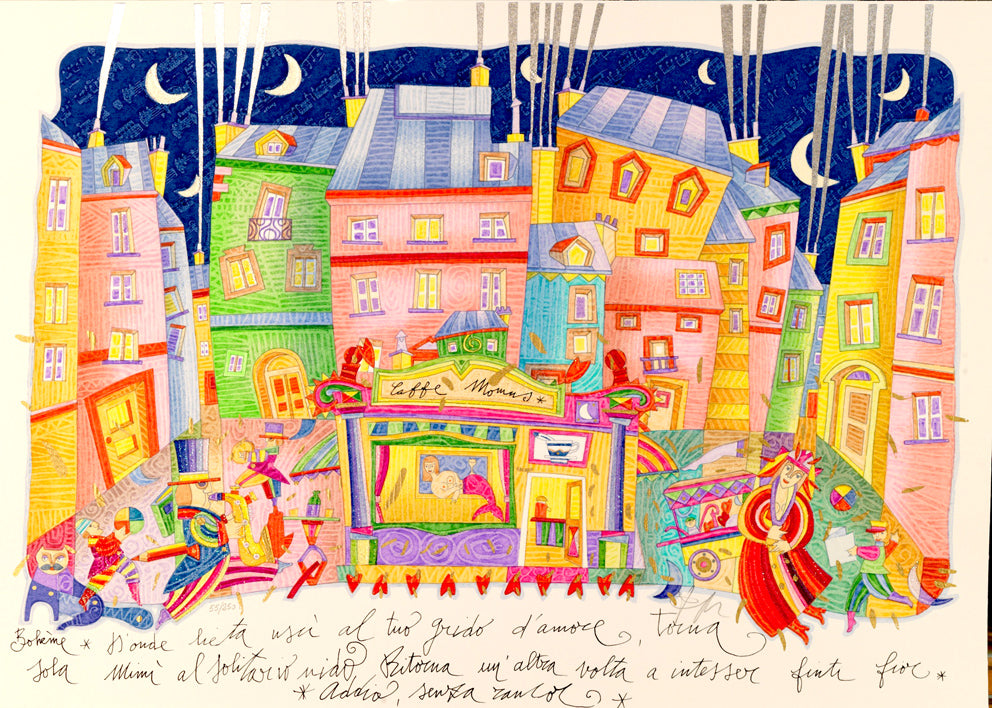 Caffè Momus *
55/250
Boheme * D'onde lieta uscì al tuo grido d'amore, torna
sola Mimì al solitario nido, Ritorna un'altra volta a intesser finti fior *
* Addio, senza rancor *